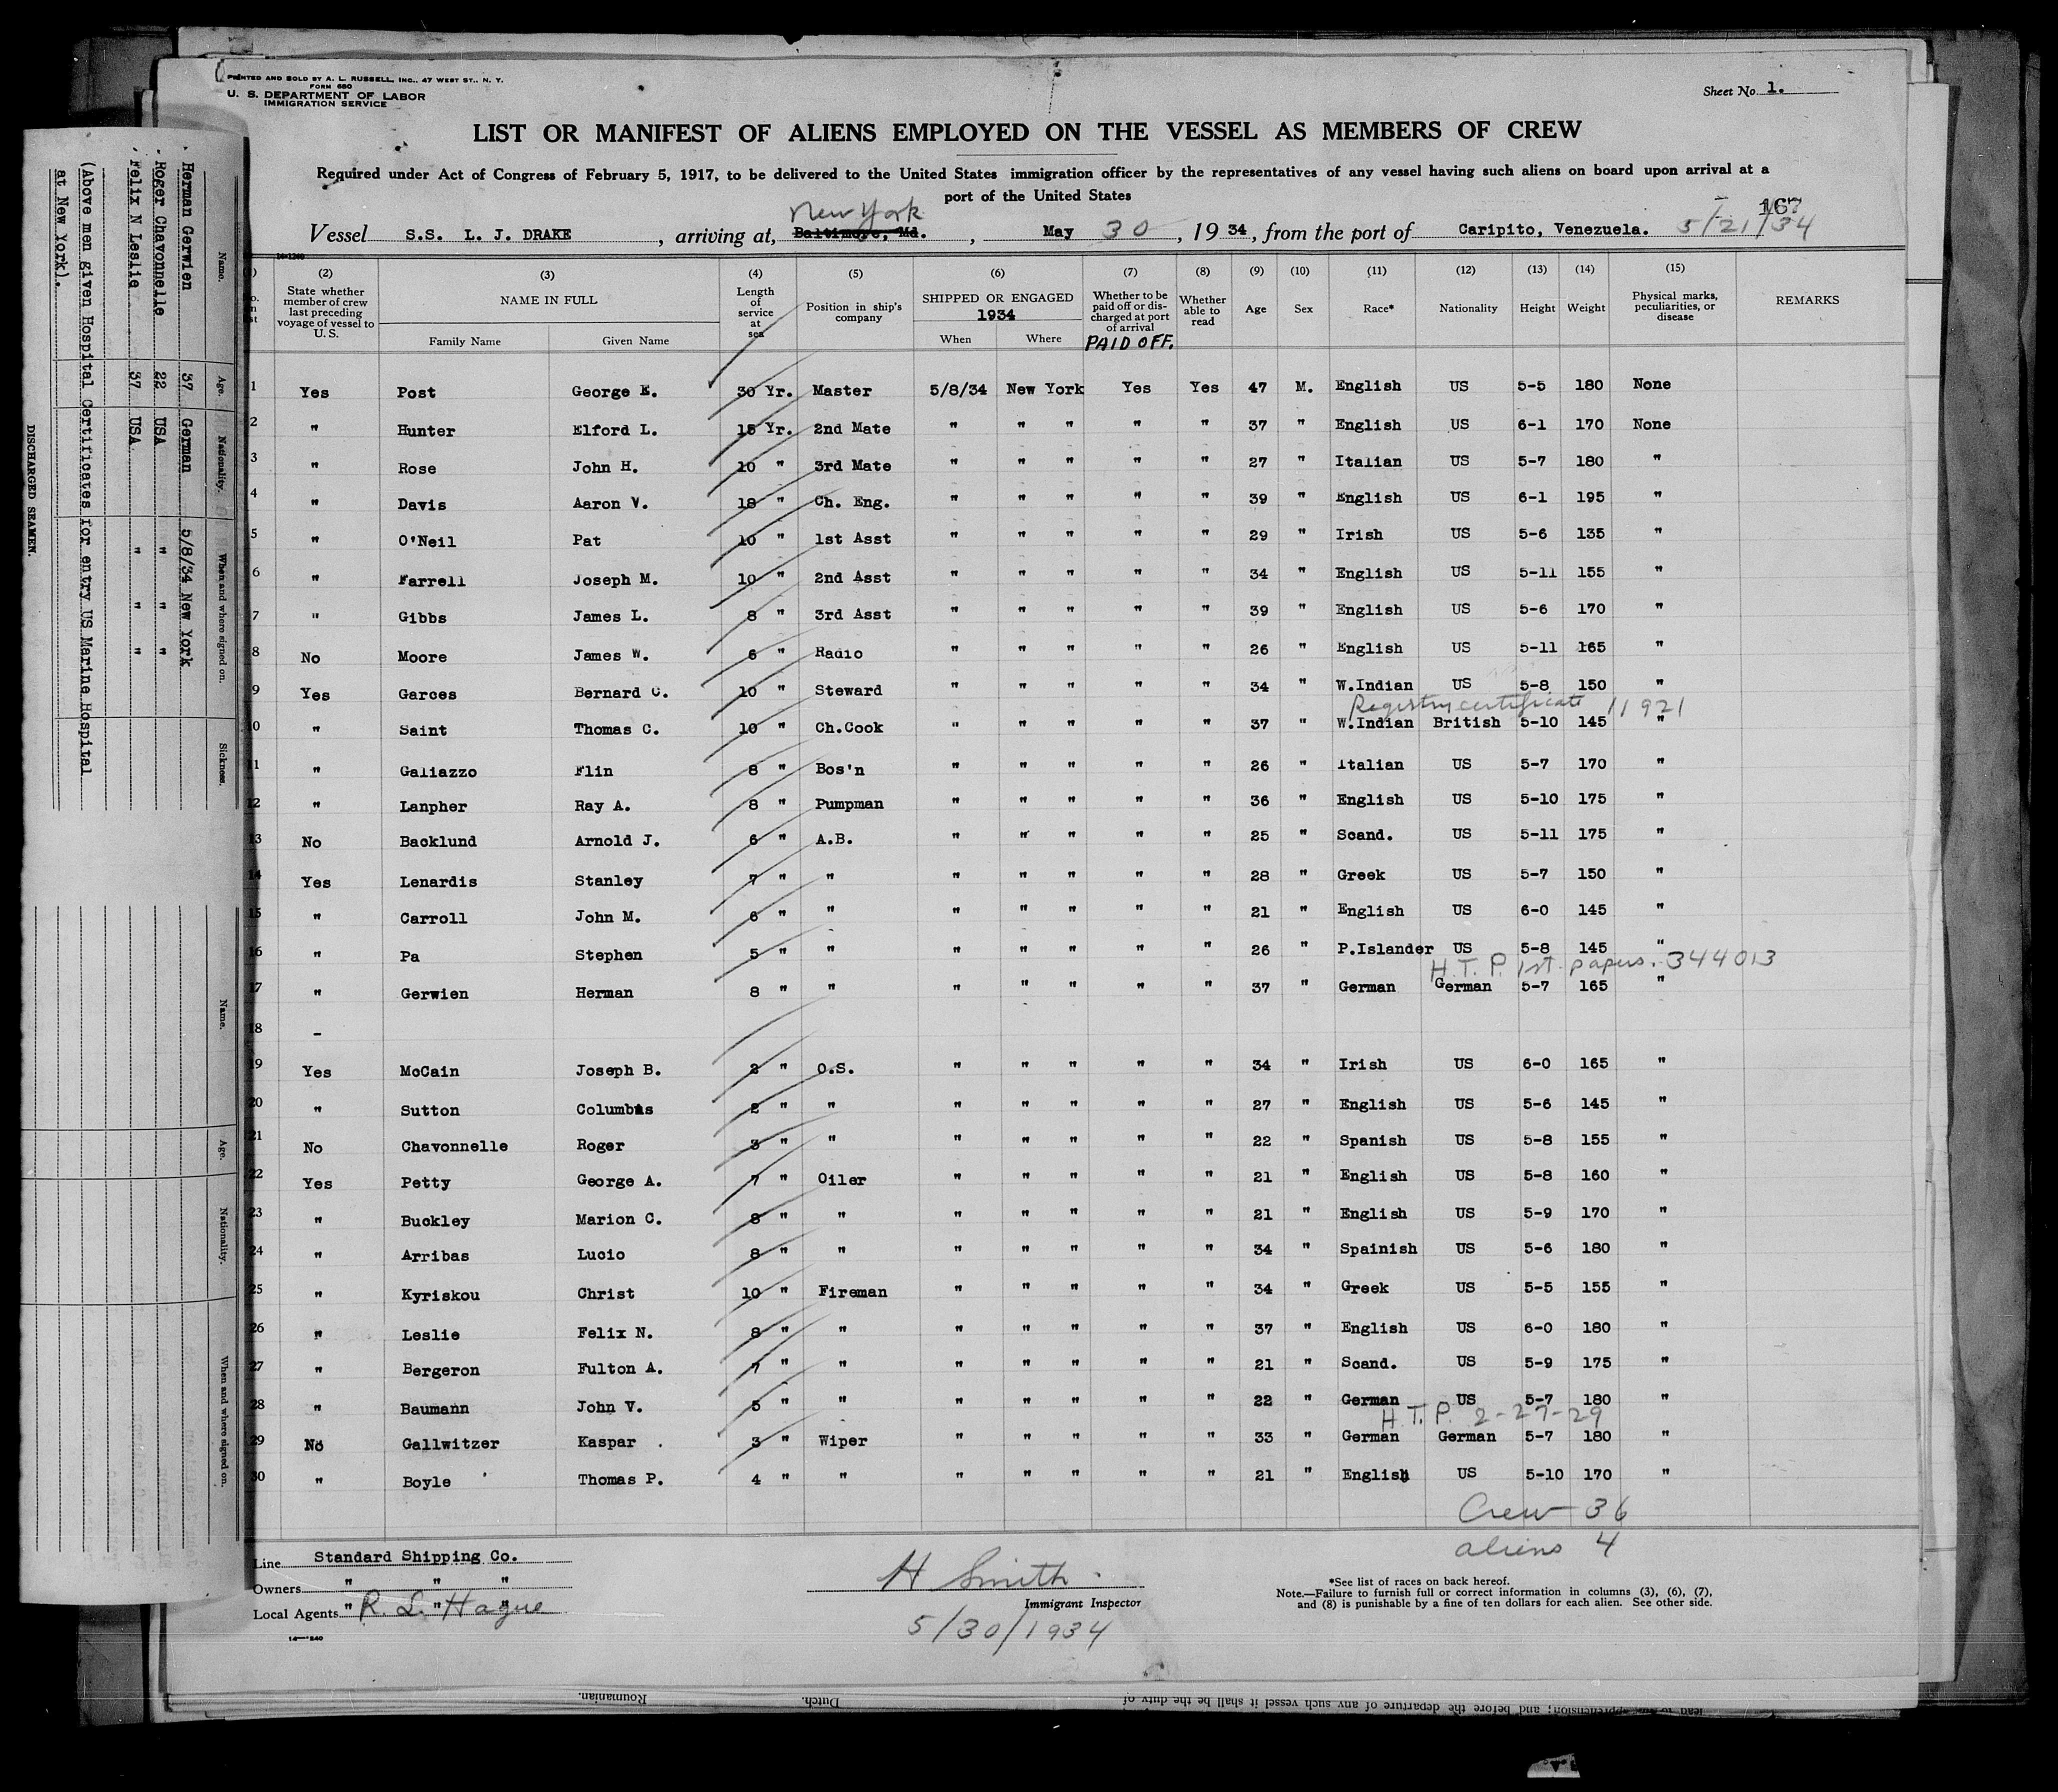 PRINTED AND SOLD BY A. L. RUSSELL, INC., 47 WEST ST., N. Y.
FORM 680
U. S. DEPARTMENT OF LABOR
IMMIGRATION SERVICE
Sheet No. 1.
LIST OR MANIFEST OF ALIENS EMPLOYED ON THE VESSEL AS MEMBERS OF CREW
Required under Act of Congress of February 5, 1917, to be delivered to the United States immigration officer by the representatives of any vessel having such aliens on board upon arrival at a
port of the United States
167
New York
Vessel S.S. L. J. DRAKE, arriving at, Baltimore, Md., May 30, 1934, from the port of Caripito, Venezuela. 5/21/34
(2) (3) (4) (5) (6) (7) (8) (9) (10) (11) (12) (13) (14) (15)
State whether member of crew last preceding voyage of vessel to U.S. NAME IN FULL Family Name Given Name Length of service at sea Position in ship's company SHIPPED OR ENGAGED 1934 When Where Whether to be paid off or discharged at port of arrival PAID OFF. Whether able to read Age Sex Race* Nationality Height Weight Physical marks, peculiarities, or disease REMARKS
1 Yes Post George E. 30 Yr. Master 5/8/34 New York Yes Yes 47 M. English US 5-5 180 None
2 " Hunter Elford L. 15 Yr. 2nd Mate " " " " " 37 " English US 6-1 170 None
3 " Rose John H. 10 " 3rd Mate " " " " " 27 " Italian US 5-7 180 "
4 " Davis Aaron V. 18 " Ch. Eng. " " " " " 39 " English US 6-1 195 "
5 " O'Neil Pat 10 " 1st Asst " " " " " 29 " Irish US 5-6 135 "
6 " Farrell Joseph M. 10 " 2nd Asst " " " " " 34 " English US 5-11 155 "
7 " Gibbs James L. 8 " 3rd Asst " " " " " 39 " English US 5-6 170 "
8 No Moore James W. 6 " Radio " " " " " 26 " English US 5-11 165 "
9 Yes Garces Bernard C. 10 " Steward " " " " " 34 " W.Indian US 5-8 150 "
Registry certificate 11921
10 " Saint Thomas C. 10 " Ch.Cook " " " " " 37 " W.Indian British 5-10 145 "
11 " Galiazzo Flin 8 " Bos'n " " " " " 26 " Italian US 5-7 170 "
12 " Lanpher Ray A. 8 " Pumpman " " " " " 36 " English US 5-10 175 "
13 No Backlund Arnold J. 6 " A.B. " " " " " 25 " Scand. US 5-11 175 "
14 Yes Lenardis Stanley 7 " " " " " " " 28 " Greek US 5-7 150 "
15 " Carroll John M. 6 " " " " " " " 21 " English US 6-0 145 "
16 " Pa Stephen 5 " " " " " " " 26 " P.Islander US 5-8 145 "
H.T.P. 1st papers. 344013
17 " Gerwien Herman 8 " " " " " " " 37 " German German 5-7 165 "
18 -
19 Yes McCain Joseph B. 2 " O.S. " " " " " 34 " Irish US 6-0 165 "
20 " Sutton Columbus 2 " " " " " " " 27 " English US 5-6 145 "
21 No Chavonnelle Roger 3 " " " " " " " 22 " Spanish US 5-8 155 "
22 Yes Petty George A. 7 " Oiler " " " " " 21 " English US 5-8 160 "
23 " Buckley Marion C. 8 " " " " " " " 21 " English US 5-9 170 "
24 " Arribas Lucio 8 " " " " " " " 34 " Spainish US 5-6 180 "
25 " Kyriskou Christ 10 " Fireman " " " " " 34 " Greek US 5-5 155 "
26 " Leslie Felix N. 8 " " " " " " " 37 " English US 6-0 180 "
27 " Bergeron Fulton A. 7 " " " " " " " 21 " Scand. US 5-9 175 "
28 " Baumann John V. 5 " " " " " " " 22 " German US 5-7 180 "
H.T.P. 2-27-29
29 No Gallwitzer Kaspar 3 " Wiper " " " " " 33 " German German 5-7 180 "
30 " Boyle Thomas P. 4 " " " " " " " 21 " English US 5-10 170 "
Crew 36
aliens 4
Line Standard Shipping Co.
Owners " " "
Local Agents " " " R. L. Hague
H Smith
Immigrant Inspector
5/30/1934
*See list of races on back hereof.
Note.—Failure to furnish full or correct information in columns (3), (6), (7),
and (8) is punishable by a fine of ten dollars for each alien. See other side.
Name. Age. Nationality. When and where signed on. Sickness.
Herman Gerwien 37 German 5/8/34 New York
Roger Chavonnelle 22 USA " " "
Felix N Leslie 37 USA " " "
(Above men given Hospital Certificates for entry US Marine Hospital
at New York).
DISCHARGED SEAMEN.
Name. Age. Nationality. When and where signed on.
Roumanian. Dutch.
apprehension; and before the departure of any such vessel it shall be the duty of